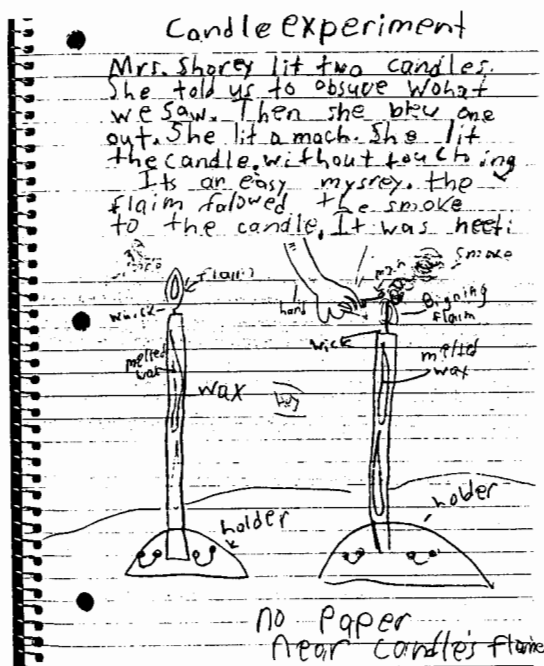 Candle experiment
Mrs. Shorey lit two candles.
She told us to obsuve wohat
we saw. Then she blew one
out. She lit a mach. She lit
the candle. without touching
Its an easy mysrey. the
flaim falowed the smoke
to the candle. It was neet!
smoke
hand
flaim
wick
wick
melted
wax
melted
wax
wax
holder
holder
no Paper
near candle's flame